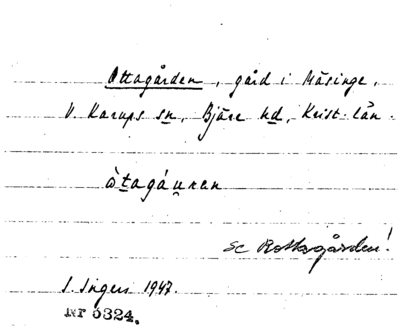 Ottagården, gård i Häsinge,
V. Karups sn, Bjäre hd, Krist. län.
òtagáu̯ꞃan
Se Rottagården!
I. Ingers 1947.
Nr 6324.